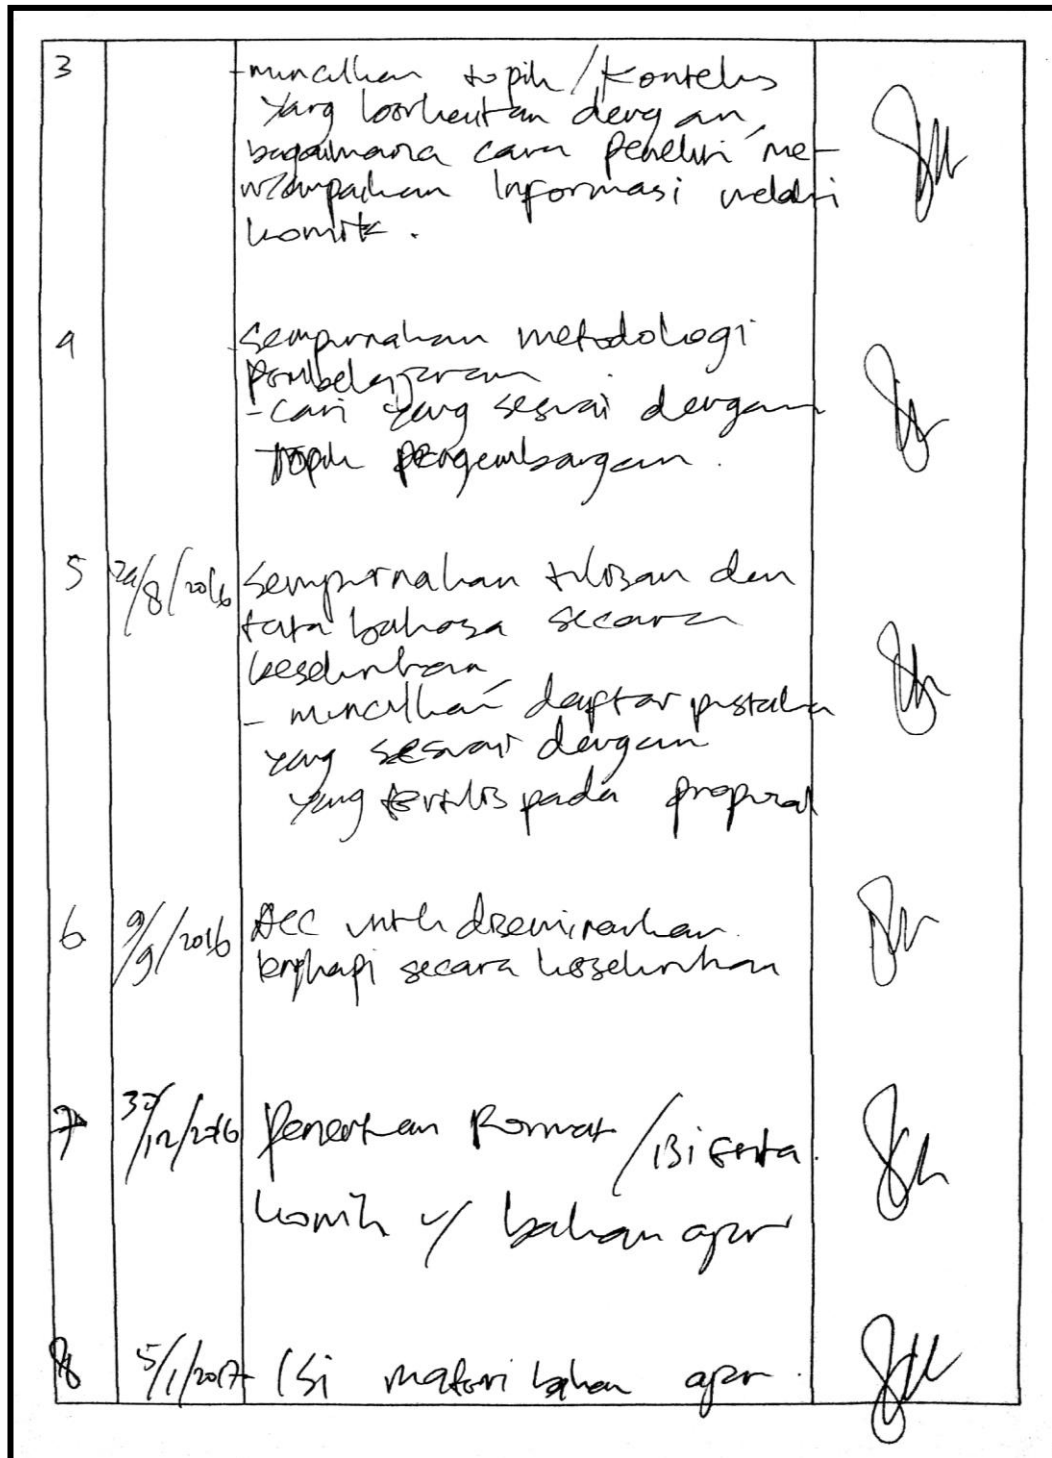 3 -munculkan topik/Konteks
yang berkaitan dengan
bagaimana cara peneliti me-
nyampaikan informasi melalui
komik.
4 -Sempurnakan metodologi
pembelajaran
-cari yang sesuai dengan
topik pengembangan.
5 24/8/2016 Sempurnakan tulisan dan
tata bahasa secara
keseluruhan
- munculkan daftar pustaka
yang sesuai dengan
yang tertulis pada proposal
6 9/9/2016 Acc untuk diseminarkan.
lengkapi secara keseluruhan
7 30/12/2016 Penentuan Format /isi cerita.
komik u/ bahan ajar
8 5/1/2017 Isi materi bahan ajar.